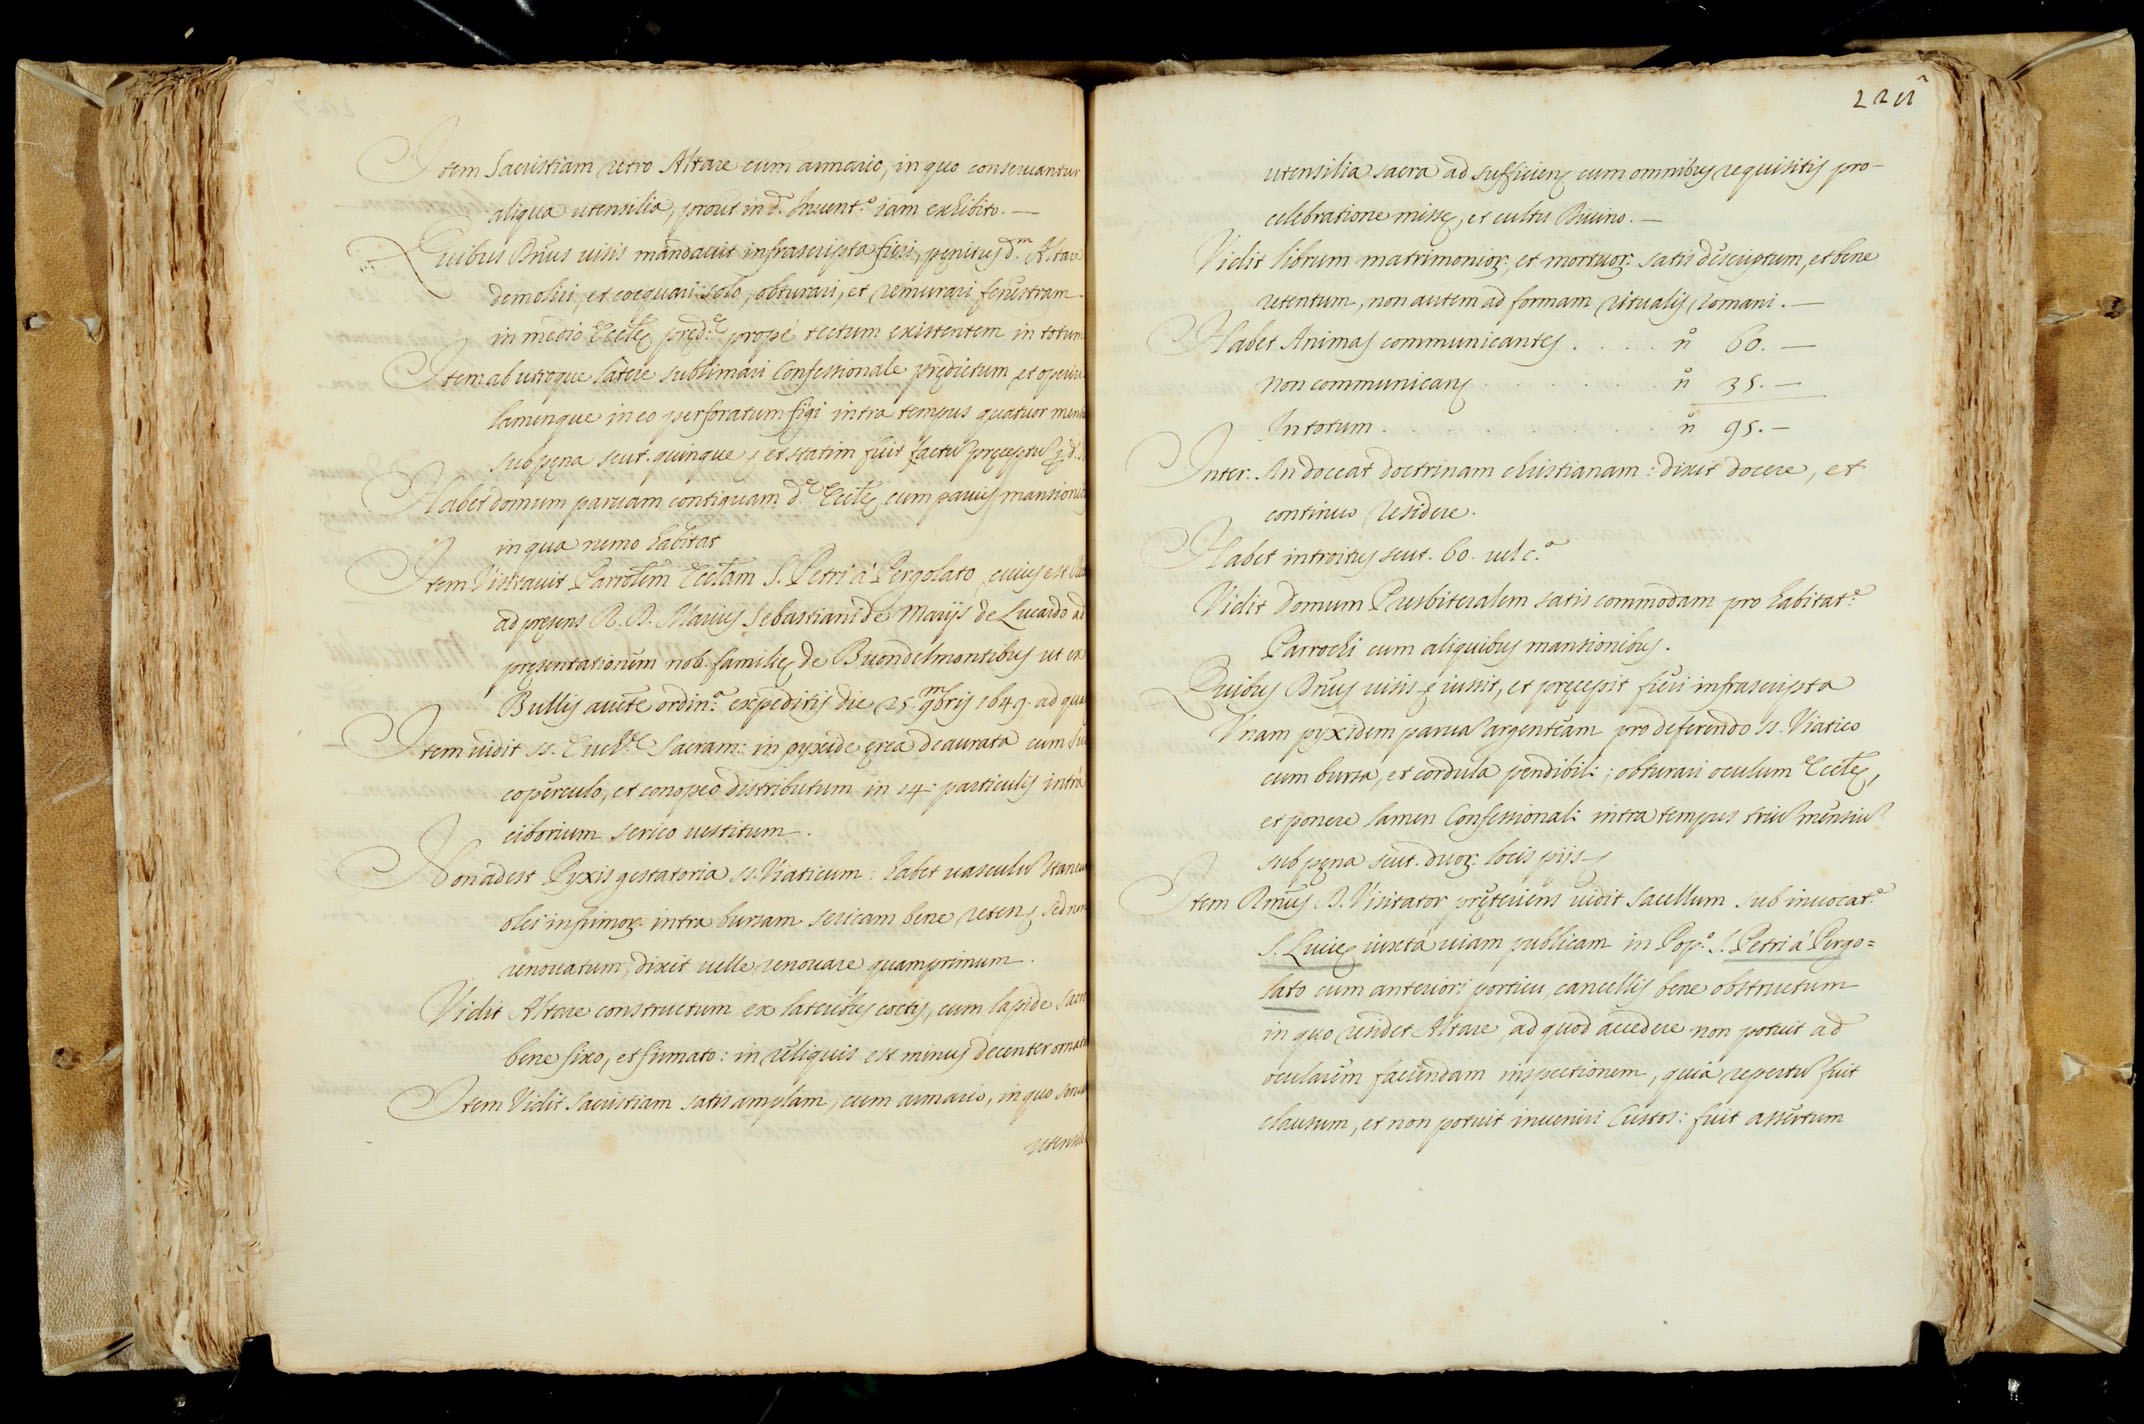 Item Sacristiam retro Altare cum armario, in quo conseruantur
aliqua utensilia, prout in d.º Inuent.º iam exhibito. —
Quibus Dñus uisis mandauit infrascripta fieri, penitus d.m Altare
demoliri, et coequari solo, obturari, et remurari fenestram
in medio Eccłę pręd.ę propè tectum existentem in totum
Item ab utroque latere sublimari Confessionale prędictum et operiri
lamenque in eo perforatum figi intra tempus quatuor
sub pęna scut. quinque, et statim fuit factũ pręceptũ
Habet domum paruam contiguam d.ę Eccłę cum paruis mansionibus
in qua nemo habitat
Item Visitauit Parrołem Eccłam S. Petri à Pergolato, cuius est
ad pręsens R. D. Marius Sebastiani de Marijs de Lucardo ad
pręsentationem nob. familię de Buondelmontibus ut ex
Bullis aucte ordin.ª expeditis die 25. 9mbris 1649. ad quam
Item uidit SS. Euch.ę Sacram: in pyxide ęrea deaurata cum suo
coperculo, et conopeo distributum in 14. particulis intrà
ciborium serico uestitum.
Non adest Pyxis gestatoria SS. Viaticum: habet uasculũ staneum
olei infirmor: intra bursam sericam bene retenę sed non
renouatum, dixit uelle renouare quamprimum.
Vidit Altare constructum ex lateribus coctis, cum lapide sacro
bene fixo, et firmato: in reliquis est minus decenter ornatum
Item Vidit Sacristiam satis amplam, cum armario, in quo
utensilia
221
utensilia sacra ad sufficienę cum omnibus requisitis pro-
celebratione missę, et cultu Diuino. —
Vidit librum matrimonior:, et mortuor: satis descriptum, et bene
retentum, non autem ad formam ritualis romani. —
Habet Animas communicantes . . . . nº 60. —
non communicanę . . . . . . . nº 35. —
In totum . . . . . . . . . nº 95. —
Inter: An doceat doctrinam christianam: dixit docere, et
continuo residere.
Habet introitus scut. 60. uel c.ª
Vidit Domum Presbiteralem satis commodam pro habitat.e
Parrochi cum aliquibus mansionibus.
Quibus Dñus uisis iussit, et pręcepit fieri infrascripta
Vnam pyxidem paruã argenteam pro deferendo SS. Viatico
cum bursa, et cordula pendibili; obturari oculum Eccłę,
et ponere lamen Confessionali intra tempus triũ mensiũ
sub pęna scut. duor: locis pijs
Item Rmũs D. Visitator pręteriens uidit Sacellum sub inuocat.e
S. Lucię iuxta uiam publicam in Pop.º S. Petri à Pergo=
lato cum anteriori porticu, cancellis bene obstructum
in quo uidet Altare, ad quod accedere non potuit ad
ocularem faciendam inspectionem, quia repertũ fuit
clausum, et non potuit inueniri Custos: fuit assertum